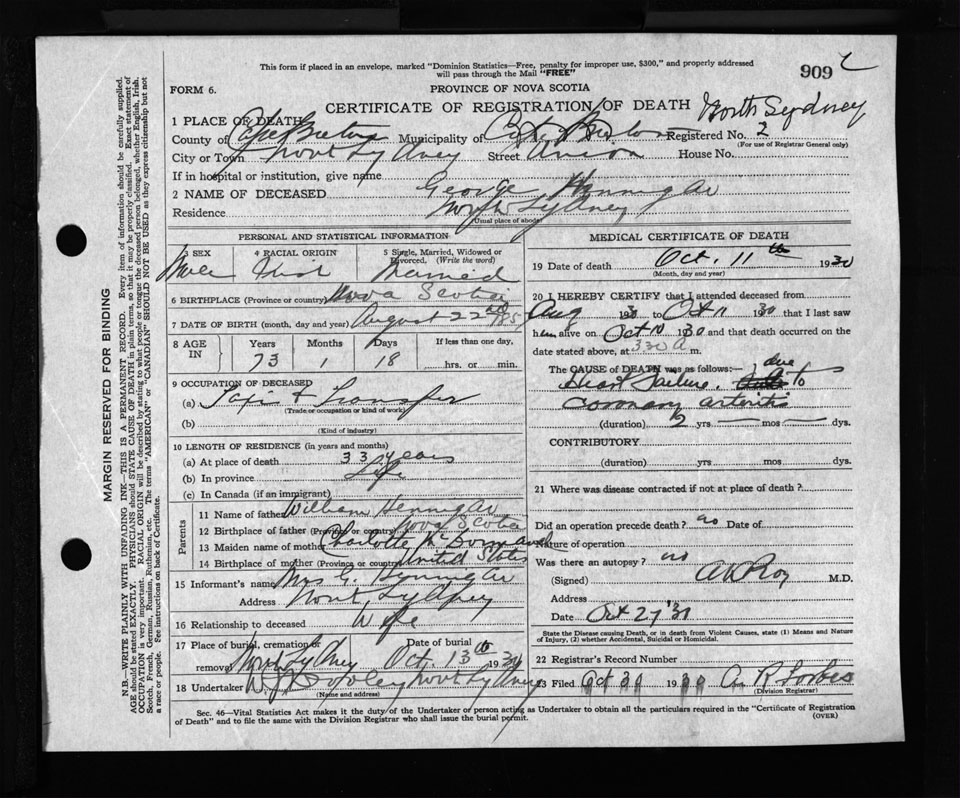 This form if placed in an envelope, marked "Dominion Statistics—Free, penalty for improper use, $300," and properly addressed
will pass through the Mail "FREE"
909
FORM 6.
PROVINCE OF NOVA SCOTIA
CERTIFICATE OF REGISTRATION OF DEATH
North Sydney
1 PLACE OF DEATH
County of Cape Breton Municipality of Cape Breton Registered No. 2
(For use of Registrar General only)
City or Town North Sydney Street Union House No.
If in hospital or institution, give name
2 NAME OF DECEASED George Hennigar
Residence North Sydney
(Usual place of abode)
PERSONAL AND STATISTICAL INFORMATION
3 SEX 4 RACIAL ORIGIN 5 Single, Married, Widowed or
Divorced. (Write the word)
Male Irish Married
6 BIRTHPLACE (Province or country) Nova Scotia
7 DATE OF BIRTH (month, day and year) August 22nd
8 AGE IN Years Months Days If less than one day,
73 1 18 hrs. or min.
9 OCCUPATION OF DECEASED
(a) Taxi & Transfer
(Trade or occupation or kind of work)
(b)
(Kind of industry)
10 LENGTH OF RESIDENCE (in years and months)
(a) At place of death 33 years
(b) In province Life
(c) In Canada (if an immigrant)
Parents
11 Name of father William Hennigar
12 Birthplace of father (Province or country) Nova Scotia
13 Maiden name of mother Charlotte
14 Birthplace of mother (Province or country) United States
15 Informant's name Mrs G. Hennigar
Address North Sydney
16 Relationship to deceased Wife
17 Place of burial, cremation or Date of burial
removal North Sydney Oct. 13th 1930
18 Undertaker North Sydney
(Name and address)
MEDICAL CERTIFICATE OF DEATH
19 Date of death Oct. 11th 1930
(Month, day and year)
20 I HEREBY CERTIFY that I attended deceased from
Aug 1930 to Oct 11 1930 that I last saw
him alive on Oct 10 1930 and that death occurred on
date stated above, at 330 A m.
The CAUSE of DEATH was as follows:— due
Heart Failure. to
coronary arteritis
(duration) 2 yrs mos dys.
CONTRIBUTORY
(duration) yrs. mos. dys.
21 Where was disease contracted if not at place of death?
Did an operation precede death? no Date of
Nature of operation
Was there an autopsy? no
(Signed) Roy M.D.
Address
Date Oct 27 '30
State the Disease causing Death, or in death from Violent Causes, state (1) Means and Nature
of Injury, (2) whether Accidental, Suicidal or Homicidal.
22 Registrar's Record Number
23 Filed Oct 30 1930 A R Forbes
(Division Registrar)
Sec. 46—Vital Statistics Act makes it the duty of the Undertaker or person acting as Undertaker to obtain all the particulars required in the "Certificate of Registration
of Death" and to file the same with the Division Registrar who shall issue the burial permit.
(OVER)
MARGIN RESERVED FOR BINDING
N.B.—WRITE PLAINLY WITH UNFADING INK—THIS IS A PERMANENT RECORD. Every item of information should be carefully supplied.
AGE should be stated EXACTLY. PHYSICIANS should STATE CAUSE OF DEATH in plain terms, so that it may be properly classified. Exact statement of
OCCUPATION is very important. RACIAL ORIGIN will be described by stating to what people or tongue the deceased person belonged, whether English, Irish,
Scotch, French, German, Russian, Ruthenian, etc. The terms "AMERICAN" or "CANADIAN" SHOULD NOT BE USED as they express citizenship but not
a race or people. See instructions on back of Certificate.